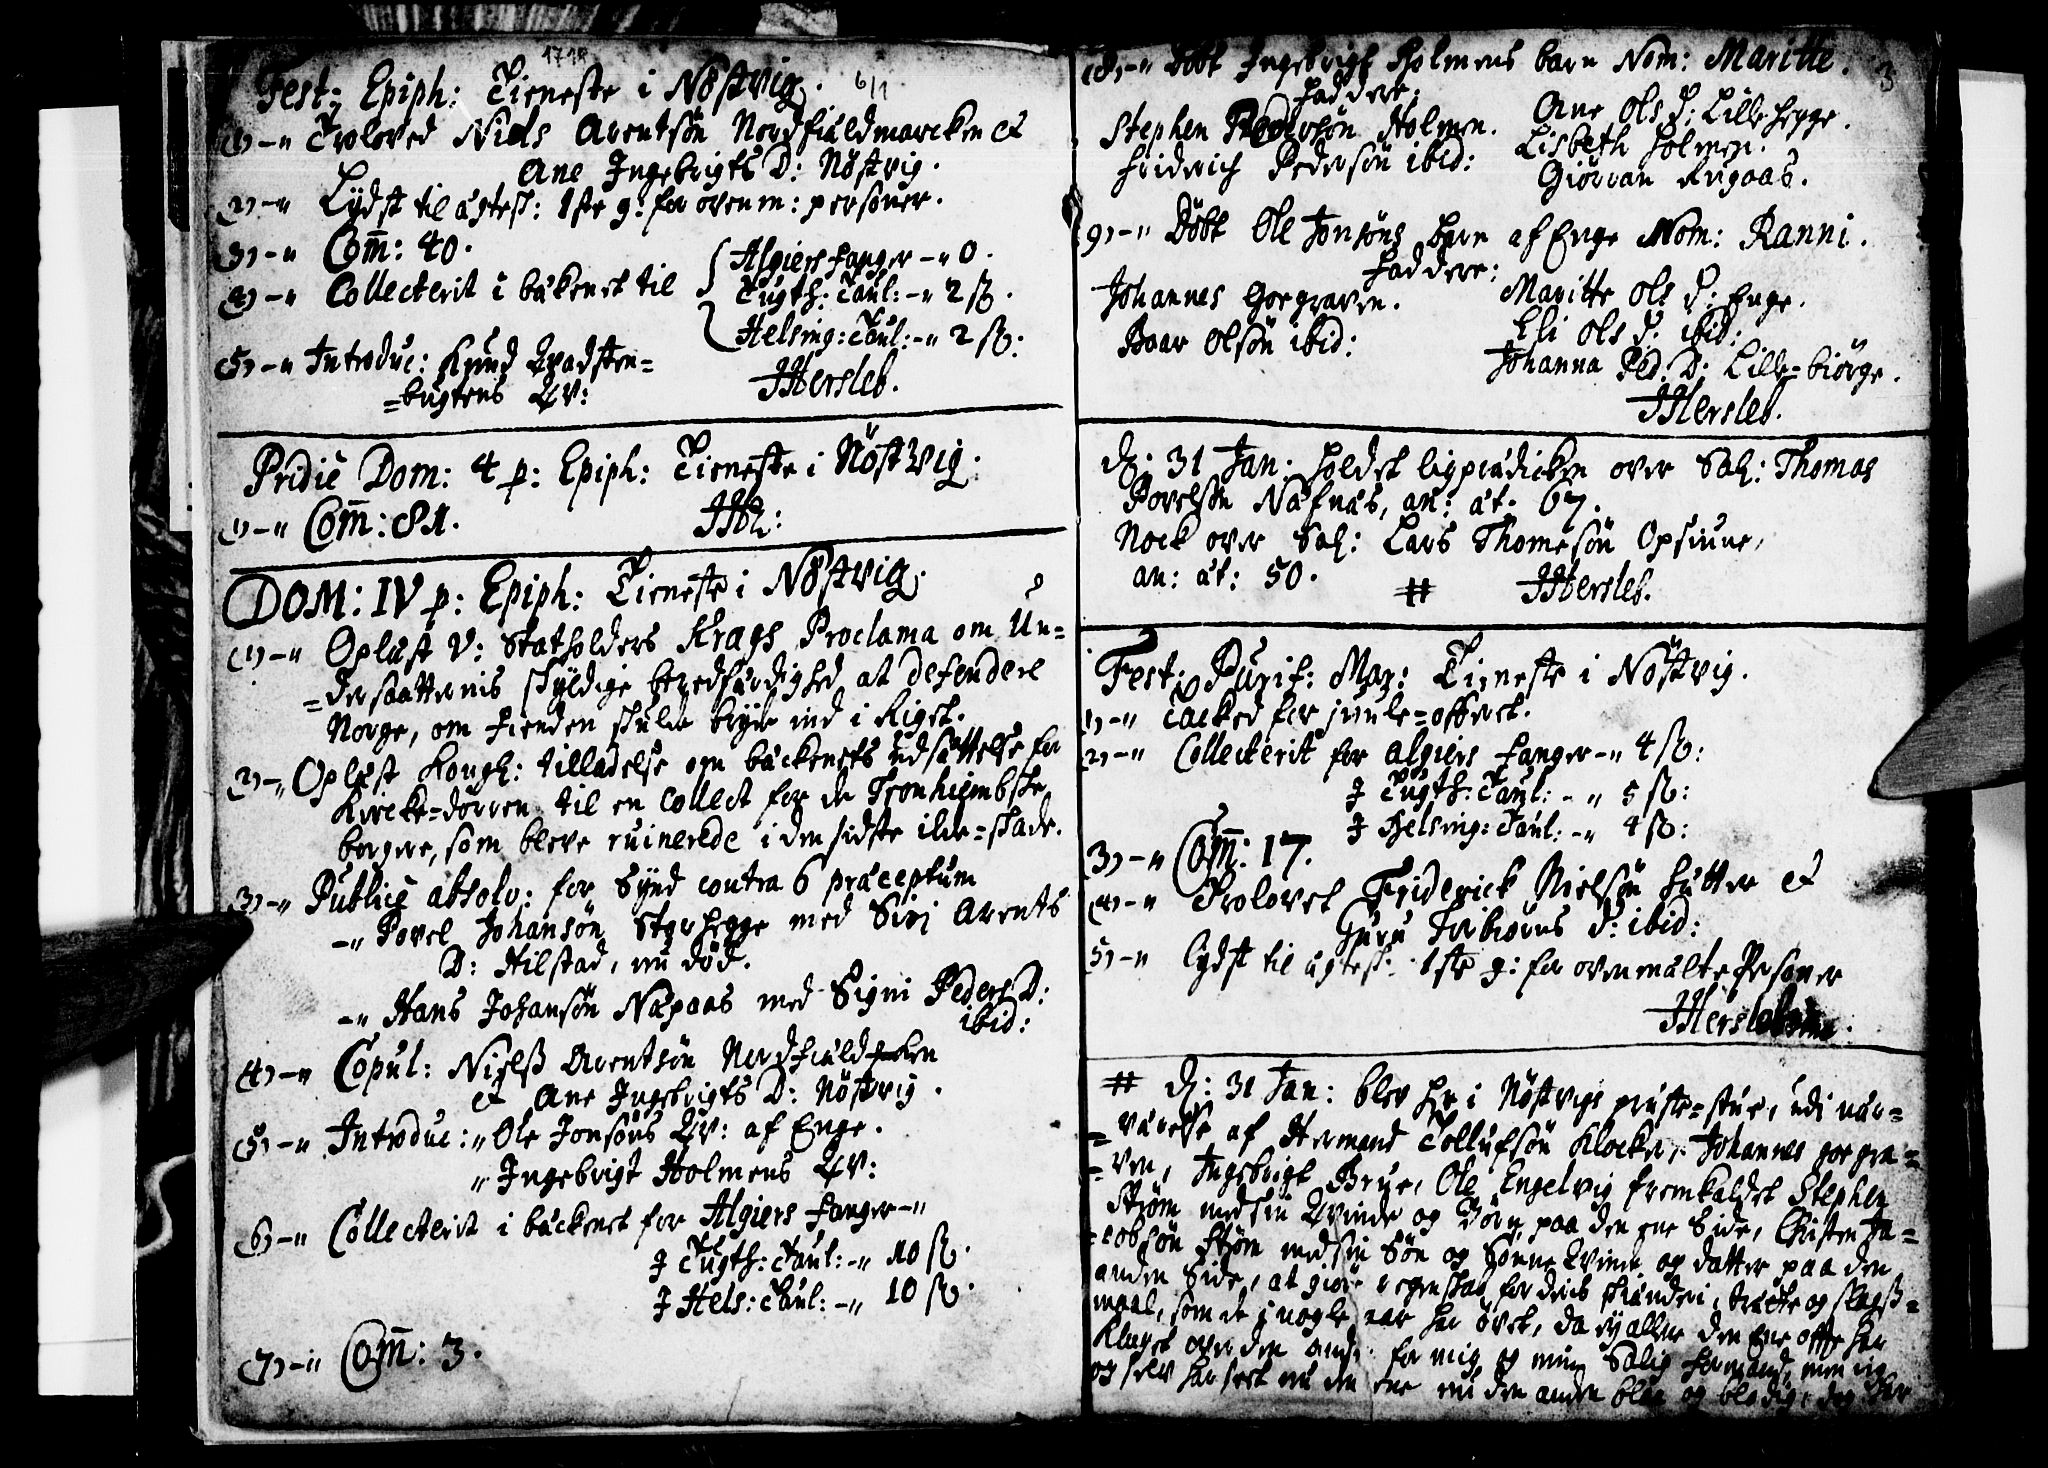 1718
Fest: Epiph: Tieneste i Nöstvig. 6/1
(1) -" Troloved Niels Arentsön Nordfiuldmarcken et
Ane Ingebrigts D: Nöstvig.
(2) -" Lydst til ægtesk: 1ste g: for ovenm: personer.
(3) -" Com̄: 40.
(4) -" Collecterit i bäkenet til
Algiers fanger -" 0.
Tugth: Taul: -" 2 ß.
Helsing: Taul: -" 2 ß:
(5) -" Introduc: Knud Quadsten=
=bugtens Qv:
JHersleb.
Pridie Dom: 4 p: Epiph: Tieneste i Nöstvig.
(1) -" Com̄: 81.
JHh:
DOM: IV p: Epiph: Tieneste i Nöstvig.
(1) -" Oplæst V: Statholders Krags Proclama om Un=
=dersaatternis skyldige beredfærdighed at defendere
Norge, om fienden skulde bryde ind i Riget.
(2) -" Oplæst Kongl: tilladelse om bäckenets udsættelse for
Kircke=dörren til en Collect for de Tronhiembske
borgere, som bleve ruinerede i den sidste ilde=skade.
(3) -" Publicè absolv: for Synd contra 6 præceptum
-" Povel Johansön Storhegge med Siri Arents
D: Hilstad, nu död.
-" Hans Johansön Næpaas med Signi Peders D:
ibid:
(4) -" Copul: Nielß Arentsön Nordfiuldmarcken
et Ane Ingebrigts D: Nöstvig.
(5) -" Introduc: " Ole Jonsöns Qv: af Enge.
" Ingebrigt Holmens Qv:
(6) -" Collecterit i bäckenet for Algiers fanger -"
J Tugth: Taul: -" 10 ß.
J Hels: Taul: -" 10 ß.
(7) -" Com̄: 3.
3
(8) -" Döbt Ingebrigt Holmens barn Nom: Maritte.
Faddere:
Stephen Pedersön Holmen. Ane Ols D: Lillehegge.
Friderich Pedersön ibid: Lisbeth Holmen.
Giörran Rugaas.
9) -" Döbt Ole Jonsöns barn af Enge Nom: Ranni.
Faddere:
Johannes Goegraven. Maritte Ols D: Enge.
Roar Olsön ibid: Eli Ols D: ibid:
Johanna Ped: D: Lille=biörge.
JHersleb.
D: 31 Jan: holdet ligprædicken over Sal: Thomas
Povelsön Næfnæs, an: æt: 67.
Nock over Sal: Lars Thomesön Opsiune,
an: æt: 50. # JHersleb.
Fest: Purif: Mar: Tieneste i Nöstvig.
1) -" Tacked for juule=offeret.
2) -" Collecterit for Algiers fanger -" 4 ß:
J Tugth: Taul: -" 5 ß:
J Helsing: Taul: -" 4 ß:
3) -" Com̄: 17.
(4) -" Trolovet Friderick Nielsön Hutter et
Guru Torbiörns D: ibid:
5) -" Lydst til ægtesk: 1ste g: for ovenmälte Personer
JHersleb
# D: 31 Jan: blev her i Nöstvigs præste=stue, udi nær=
=værelse af Hermand Tollufsön Klocker, Johannes goegra=
=ven, Ingebrigt Brue, Ole Engelvig fremkaldet Stephen
Ström med sin Qvinde og Börn paa den ene Side, Christen Ja=
=cobsön Ström med sin Sön og Sönne Qvinde og datter paa den
anden Side, at giöre regenskab for deris skiänderi, trætte og slagß=
maal, som de i nogle aar har övet, da ey allene den Ene offte har
Klaget over den anden for mig og min Salig formand, men jeg
og selv har seet nu den ene nu den anden blaa og blodig, dog